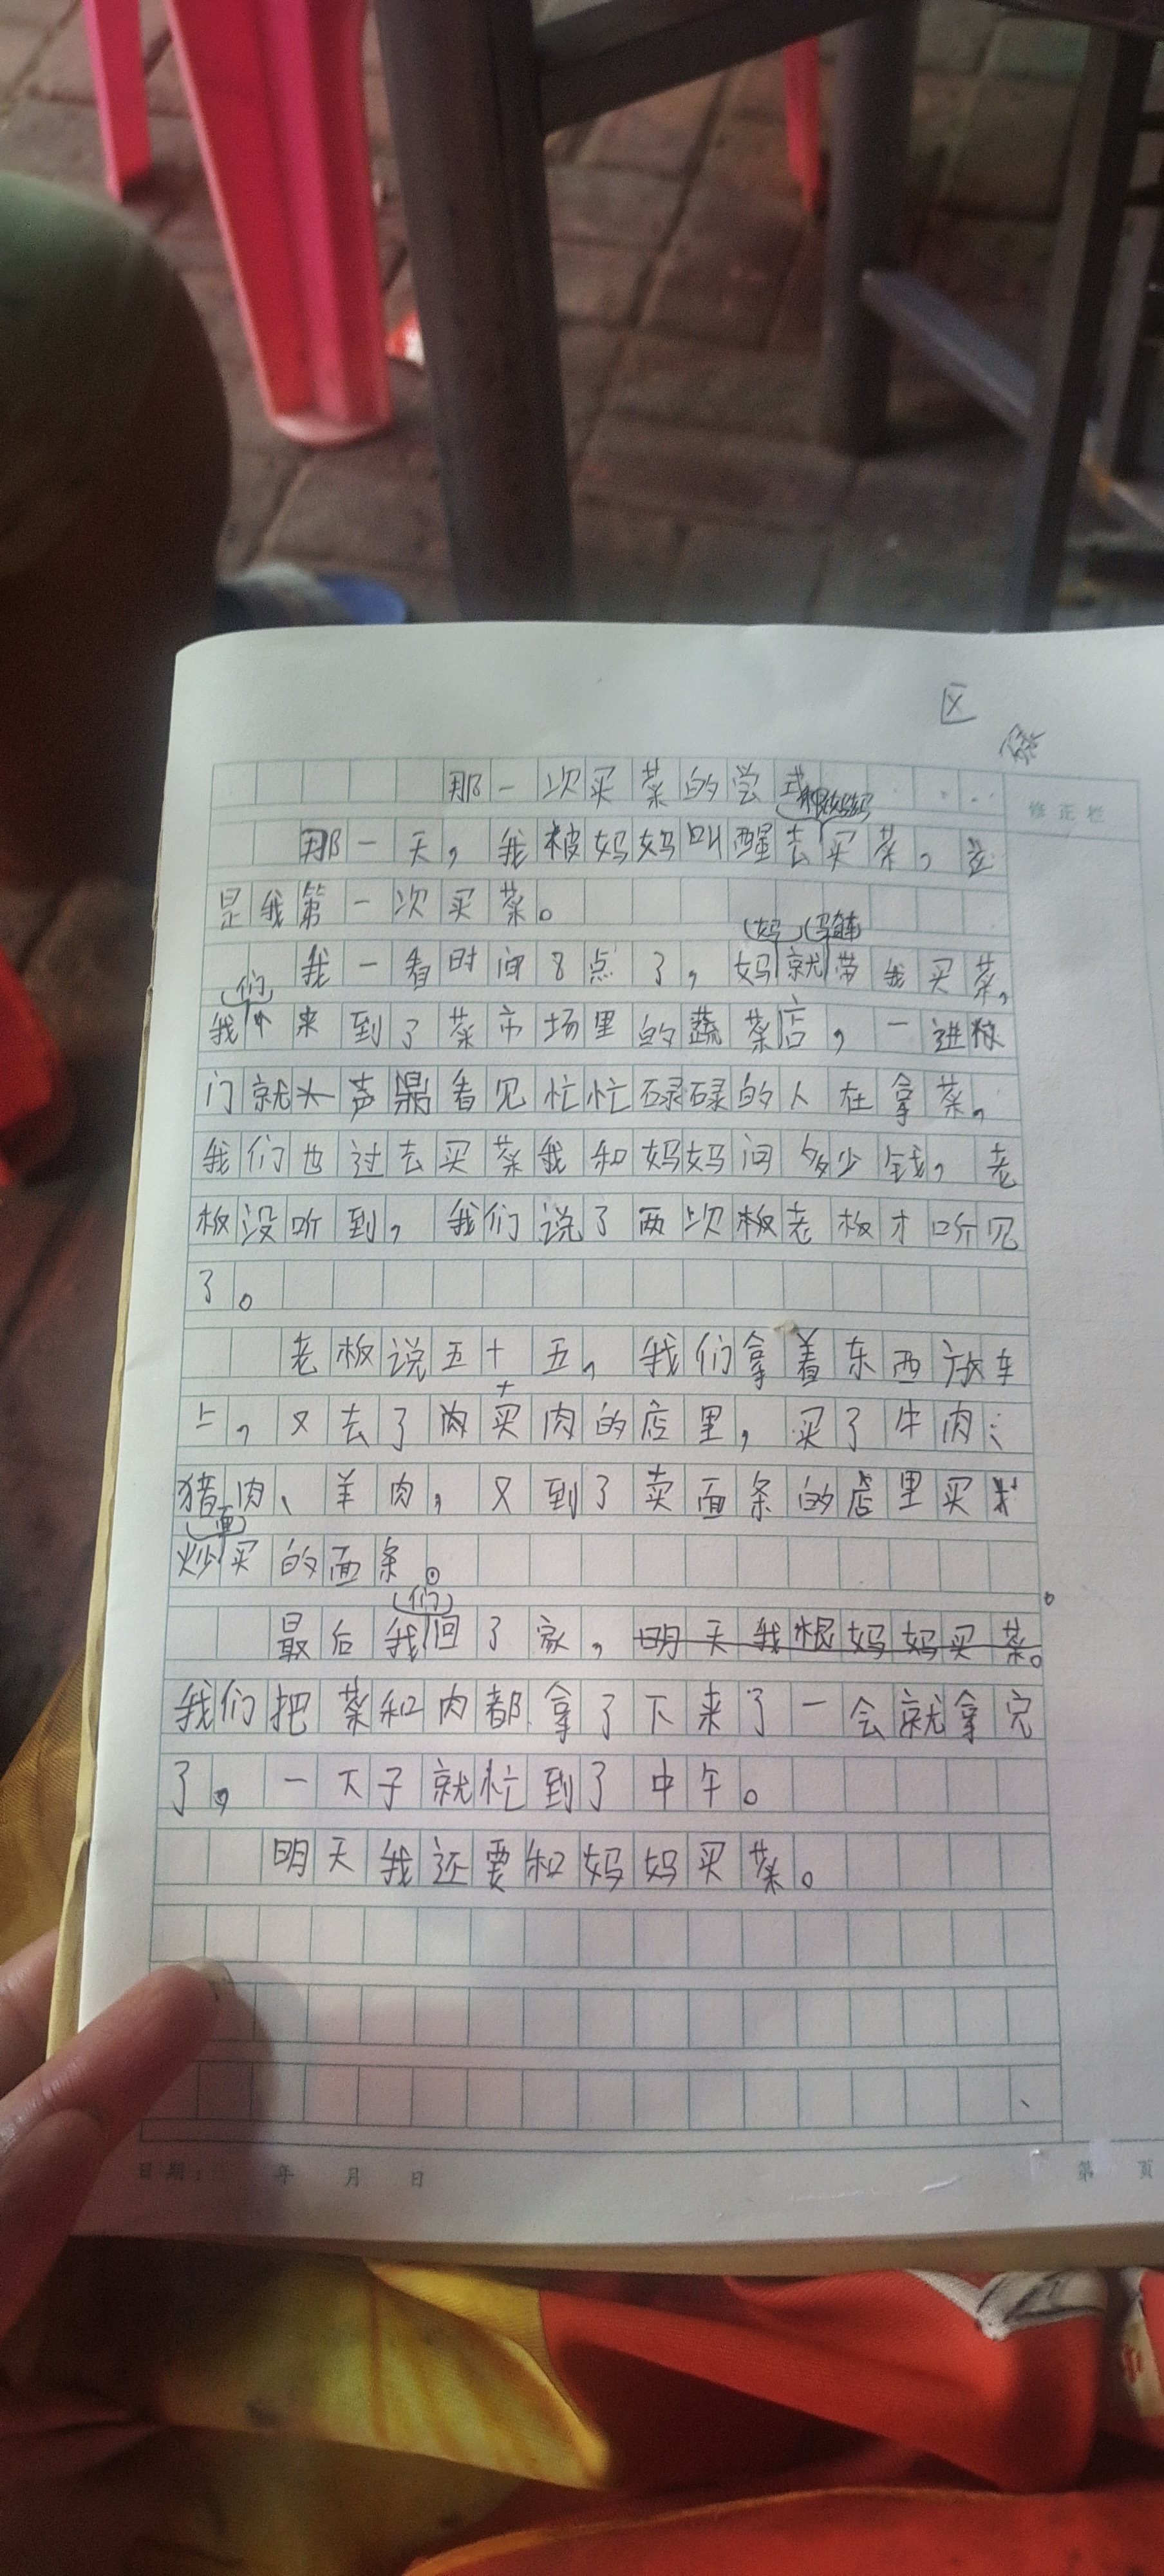 区
那一次买菜的尝试
修正栏
和妈妈
那一天，我被妈妈叫醒去买菜，这
是我第一次买菜。
妈 骑车
我一看时间8点了，妈就带我买菜，
们
我来到了菜市场里的蔬菜店，一进
门就人声鼎看见忙忙碌碌的人在拿菜，
我们也过去买菜我和妈妈问多少钱，老
板没听到，我们说了两次板老板才听见
了。
老板说五十五，我们拿着东西放车
上，又去了肉买肉的店里，买了牛肉、
猪肉、羊肉，又到了卖面条的店里买
面
炒买的面条。
们
最后我回了家，明天我根妈妈买菜。
我们把菜和肉都拿了下来了一会就拿完
了，一下子就忙到了中午。
明天我还要和妈妈买菜。
日期： 年 月 日
第 页